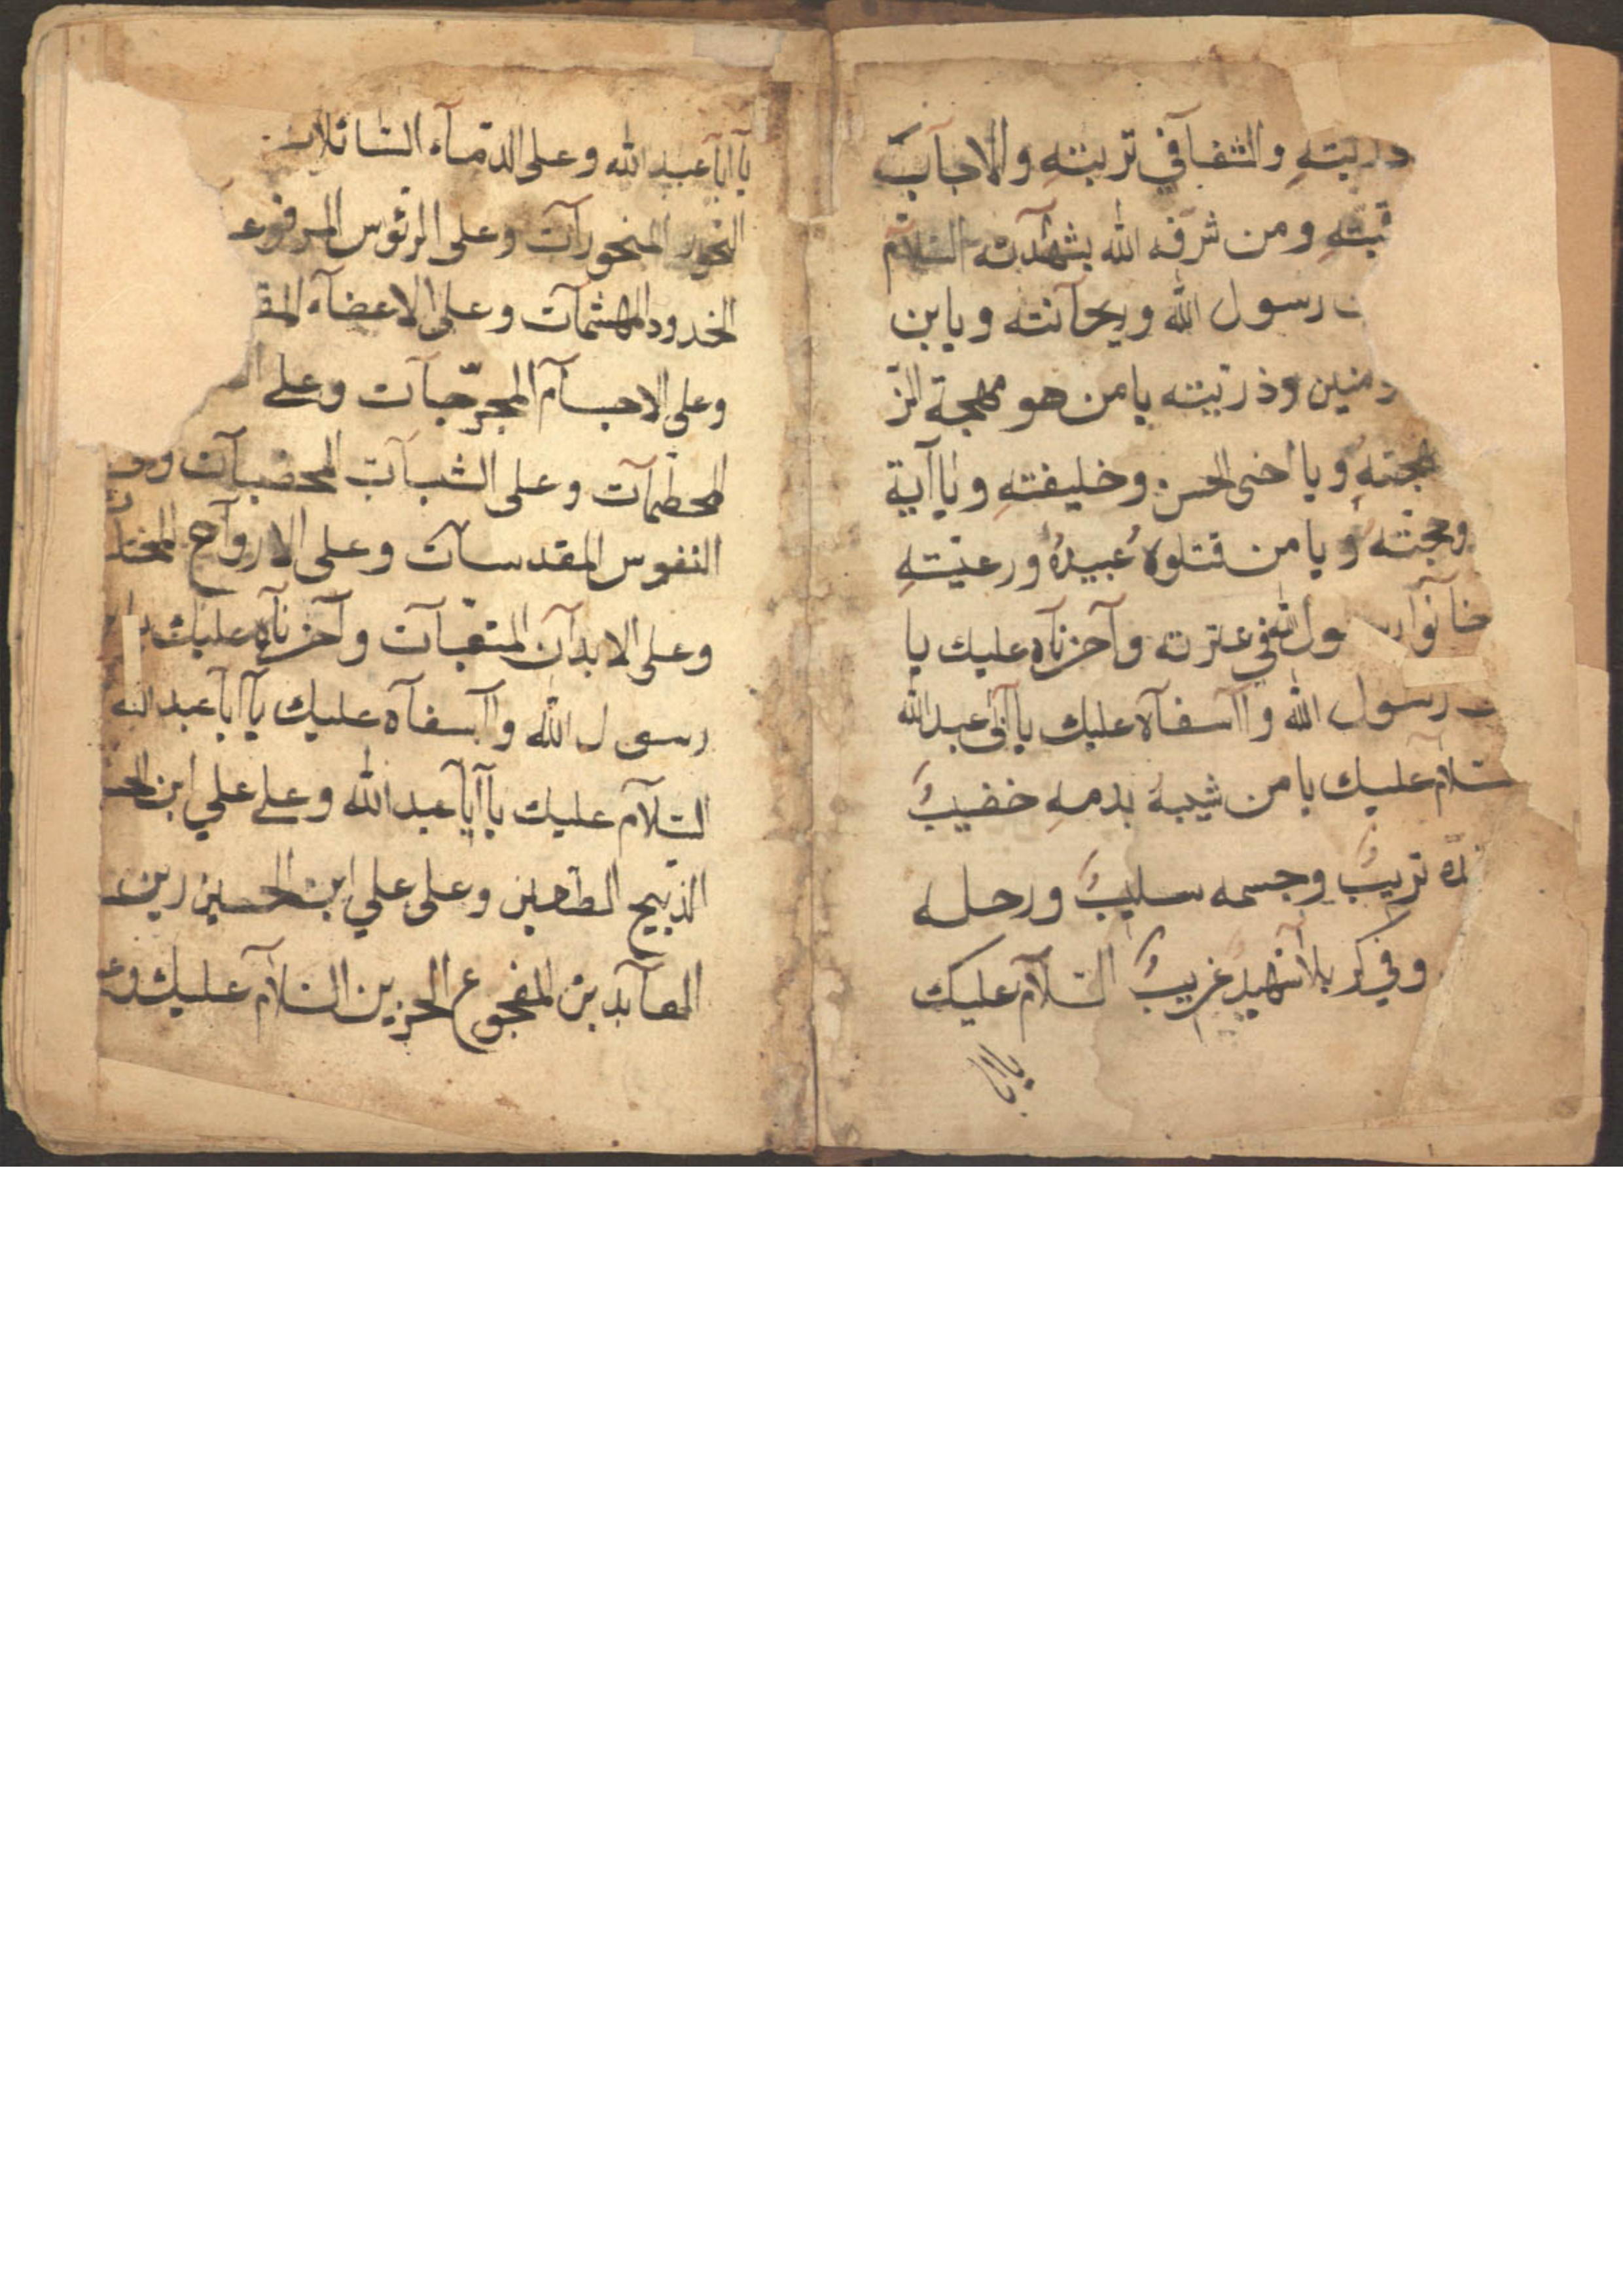 ذريته والشفا في تربته والاجآبة
قبته ومن شرفه الله بشهآدته السلام
رسول الله وريحآنته ويابن
ومنين وذريته يا من هو مهجة الز
مهجته ويا اخى الحسن وخليفته ويا آية
وحجته ويا من قتلوه عبيده ورعيته
خآنوا رسول الله في عترته وآحزنآه عليك يا
رسول الله وا آسفآه عليك يا آبى عبد الله
سلام عليك يا من شيبه بدمه خضيب
تريب وجسمه سليب ورحله
وفي كربلا شهيد غريب السلآم عليك
يا ابا
يآ ابآ عبد الله وعلى الدمآء السائلات
النحور المنحورآت وعلى الرئوس المرفوعـ
الخدود المهشمآت وعلى الاعضآء المقـ
وعلى الاجسآم المجرحآت وعلى
المحطمآت وعلى الشبآت المخضبآت
النفوس المقدسآت وعلى الاروآح المختـ
وعلى الابدآن المتعبآت وآحزنآه عليك
رسول الله وا آسفآه عليك يآ ابآ عبد الله
السلآم عليك يا آبآ عبد الله وعلى علي ابن الحسـ
الذبيح الطعين وعلى علي ابن الحسين زين
العآبدين المفجوع الحزين السلآم عليك وعـ